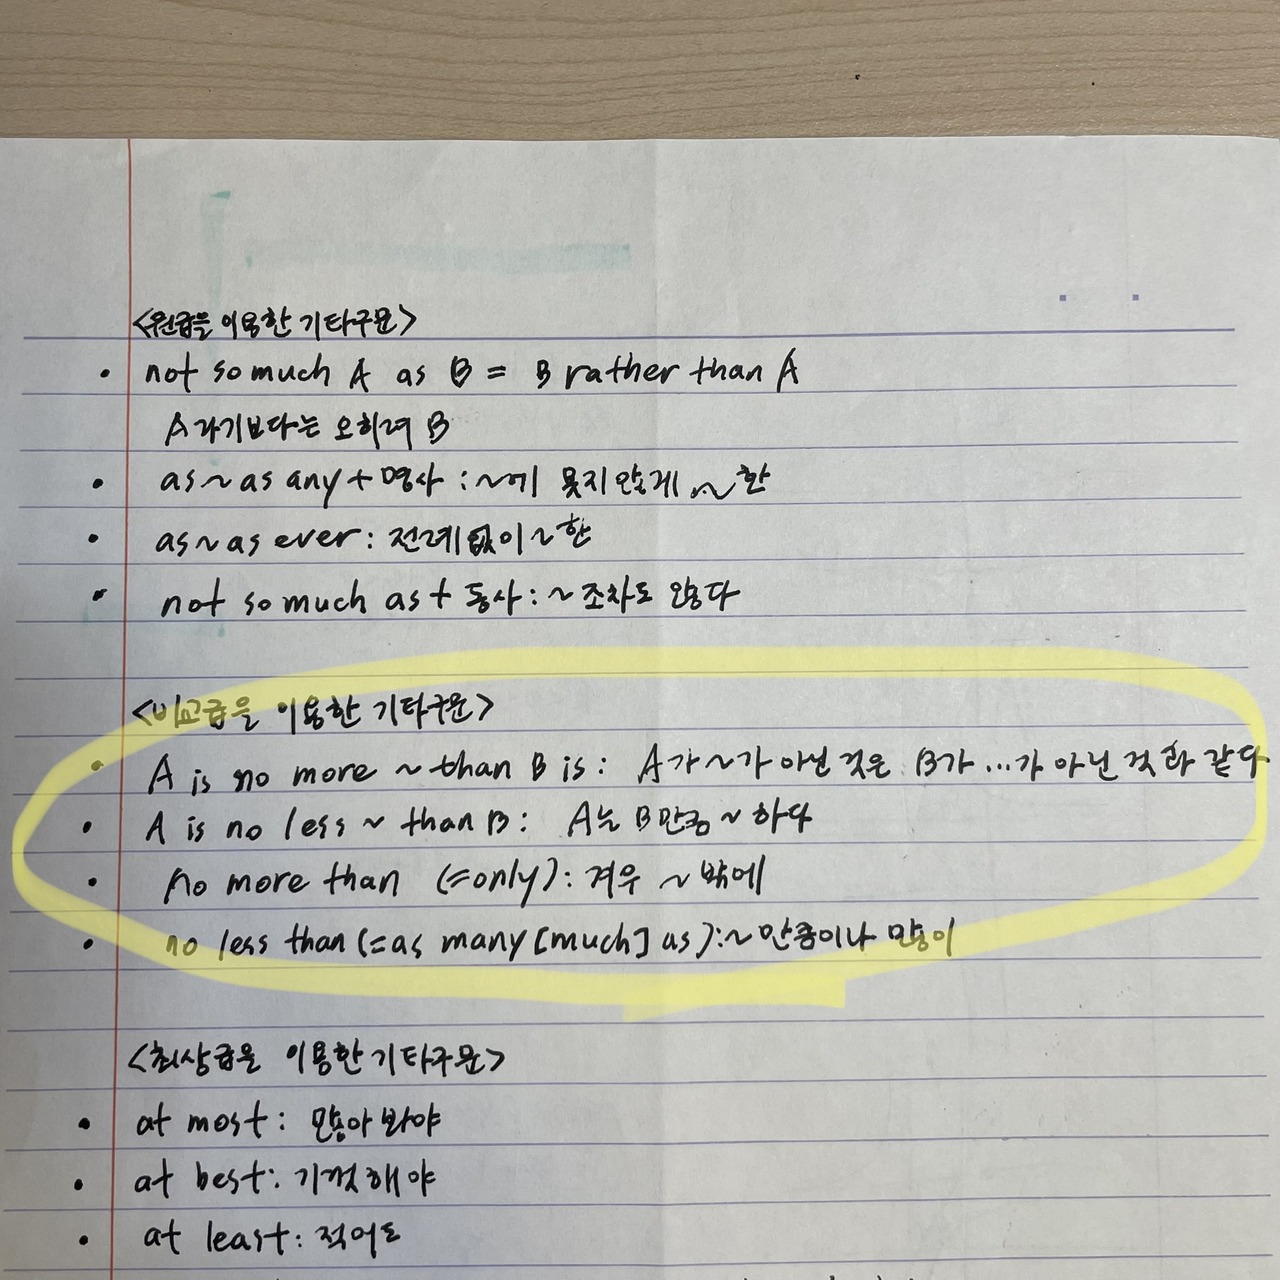 <원급을 이용한 기타구문>
• not so much A as B = B rather than A
A라기보다는 오히려 B
• as ~ as any + 명사 : ~에 못지않게 ~한
• as ~ as ever : 전례없이 ~한
• not so much as + 동사 : ~조차도 않다
<비교급을 이용한 기타구문>
• A is no more ~ than B is : A가 ~가 아닌 것은 B가 ...가 아닌 것과 같다
• A is no less ~ than B : A는 B만큼 ~하다
• no more than (=only) : 겨우 ~밖에
• no less than (=as many [much] as) : ~만큼이나 많이
<최상급을 이용한 기타구문>
• at most : 많아봐야
• at best : 기껏해야
• at least : 적어도